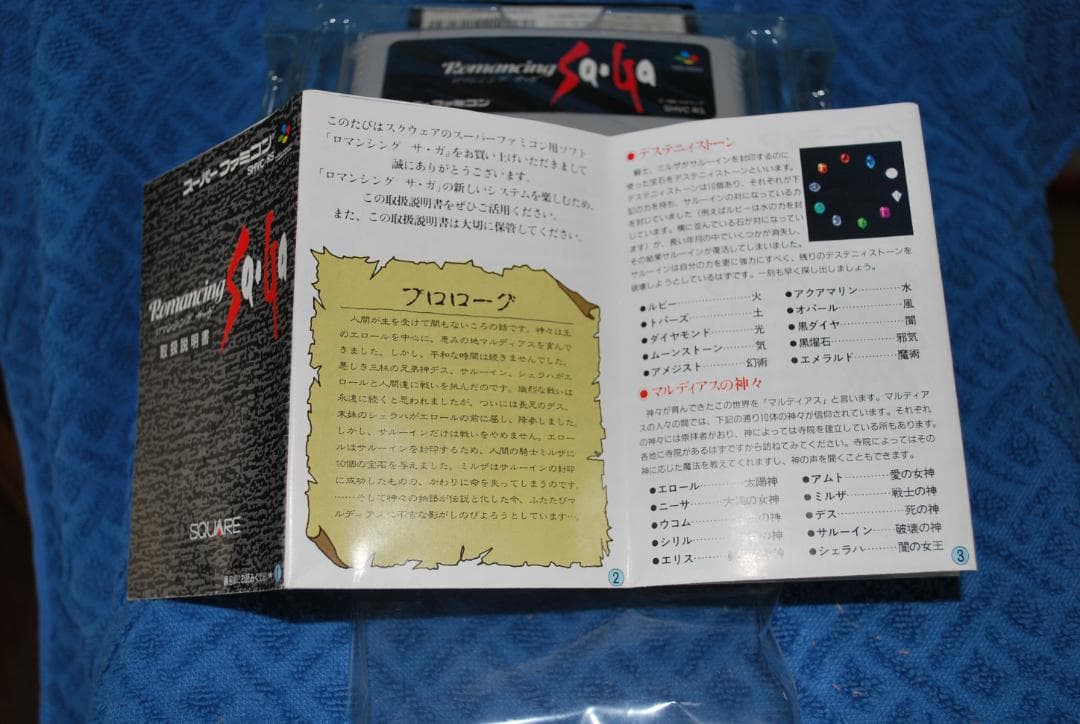 Romancing Sa・Ga
スーパーファミコン
SHVC-RS
スーパーファミコン
SHVC-RS
Romancing Sa・Ga
ロマンシング サ・ガ
取扱説明書
SQUARE
1
このたびはスクウェアのスーパーファミコン用ソフト
「ロマンシング サ・ガ」をお買い上げいただきまして
誠にありがとうございます。
「ロマンシング サ・ガ」の新しいシステムを楽しむため、
この取扱説明書をぜひご活用ください。
また、この取扱説明書は大切に保管してください。
プロローグ
人間が生を受けて間もないころの話です。神々は王
のエロールを中心に、恵みの地マルディアスを育んで
きました。しかし、平和な時間は続きませんでした。
悪しき三柱の兄弟神デス、サルーイン、シェラハがエ
ロールと人間達に戦いを挑んだのです。熾烈な戦いは
永遠に続くと思われましたが、ついには長兄のデス、
末妹のシェラハがエロールの前に屈し、降参しました。
しかし、サルーインだけは戦いをやめません。エロー
ルはサルーインを封印するため、人間の騎士ミルザに
10個の宝石を与えました。ミルザはサルーインの封印
に成功したものの、かわりに命を失ってしまうのです。
……そして神々の物語が伝説と化した今、ふたたびマ
ルディアスに不吉な影がしのびよろうとしています…。
2
●デステニィストーン
騎士、ミルザがサルーインを封印するのに
使った宝石をデステニィストーンといいます。
デステニィストーンは10個あり、それぞれが下
記の力を持ち、サルーインの対になっている力
を封じていました（例えばルビーは水の力を封
じています。横に並んでいる石が対になってい
ます）が、長い年月の中でいくつかが消失し、
その結果サルーインが復活してしまいました。
サルーインは自分の力を更に強力にすべく、残りのデステニィストーンを
破壊しようとしているはずです。一刻も早く探し出しましょう。
●ルビー…………火
●トパーズ…………土
●ダイヤモンド…………光
●ムーンストーン…………気
●アメジスト…………幻術
●アクアマリン…………水
●オパール…………風
●黒ダイヤ…………闇
●黒耀石…………邪気
●エメラルド…………魔術
●マルディアスの神々
神々が育んできたこの世界を「マルディアス」と言います。マルディア
スの人々の間では、下記の通り10体の神々が信仰されています。それぞれ
の神々には崇拝者があり、神によっては寺院を建立している所もあります。
各地に寺院があるはずですから訪ねてみてください。寺院によってはその
神に応じた魔法を教えてくれますし、神の声を聞くこともできます。
●エロール…………太陽神
●ニーサ…………大地の女神
●ウコム…………の神
●シリル…………の神
●エリス…………
●アムト…………愛の女神
●ミルザ…………戦士の神
●デス…………死の神
●サルーイン…………破壊の神
●シェラハ…………闇の女王
3